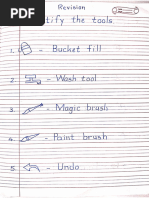 Revision
tify the tools
1. - Bucket fill
2. - Wash tool
3. - Magic brush
4. - Paint brush
5. - Undo